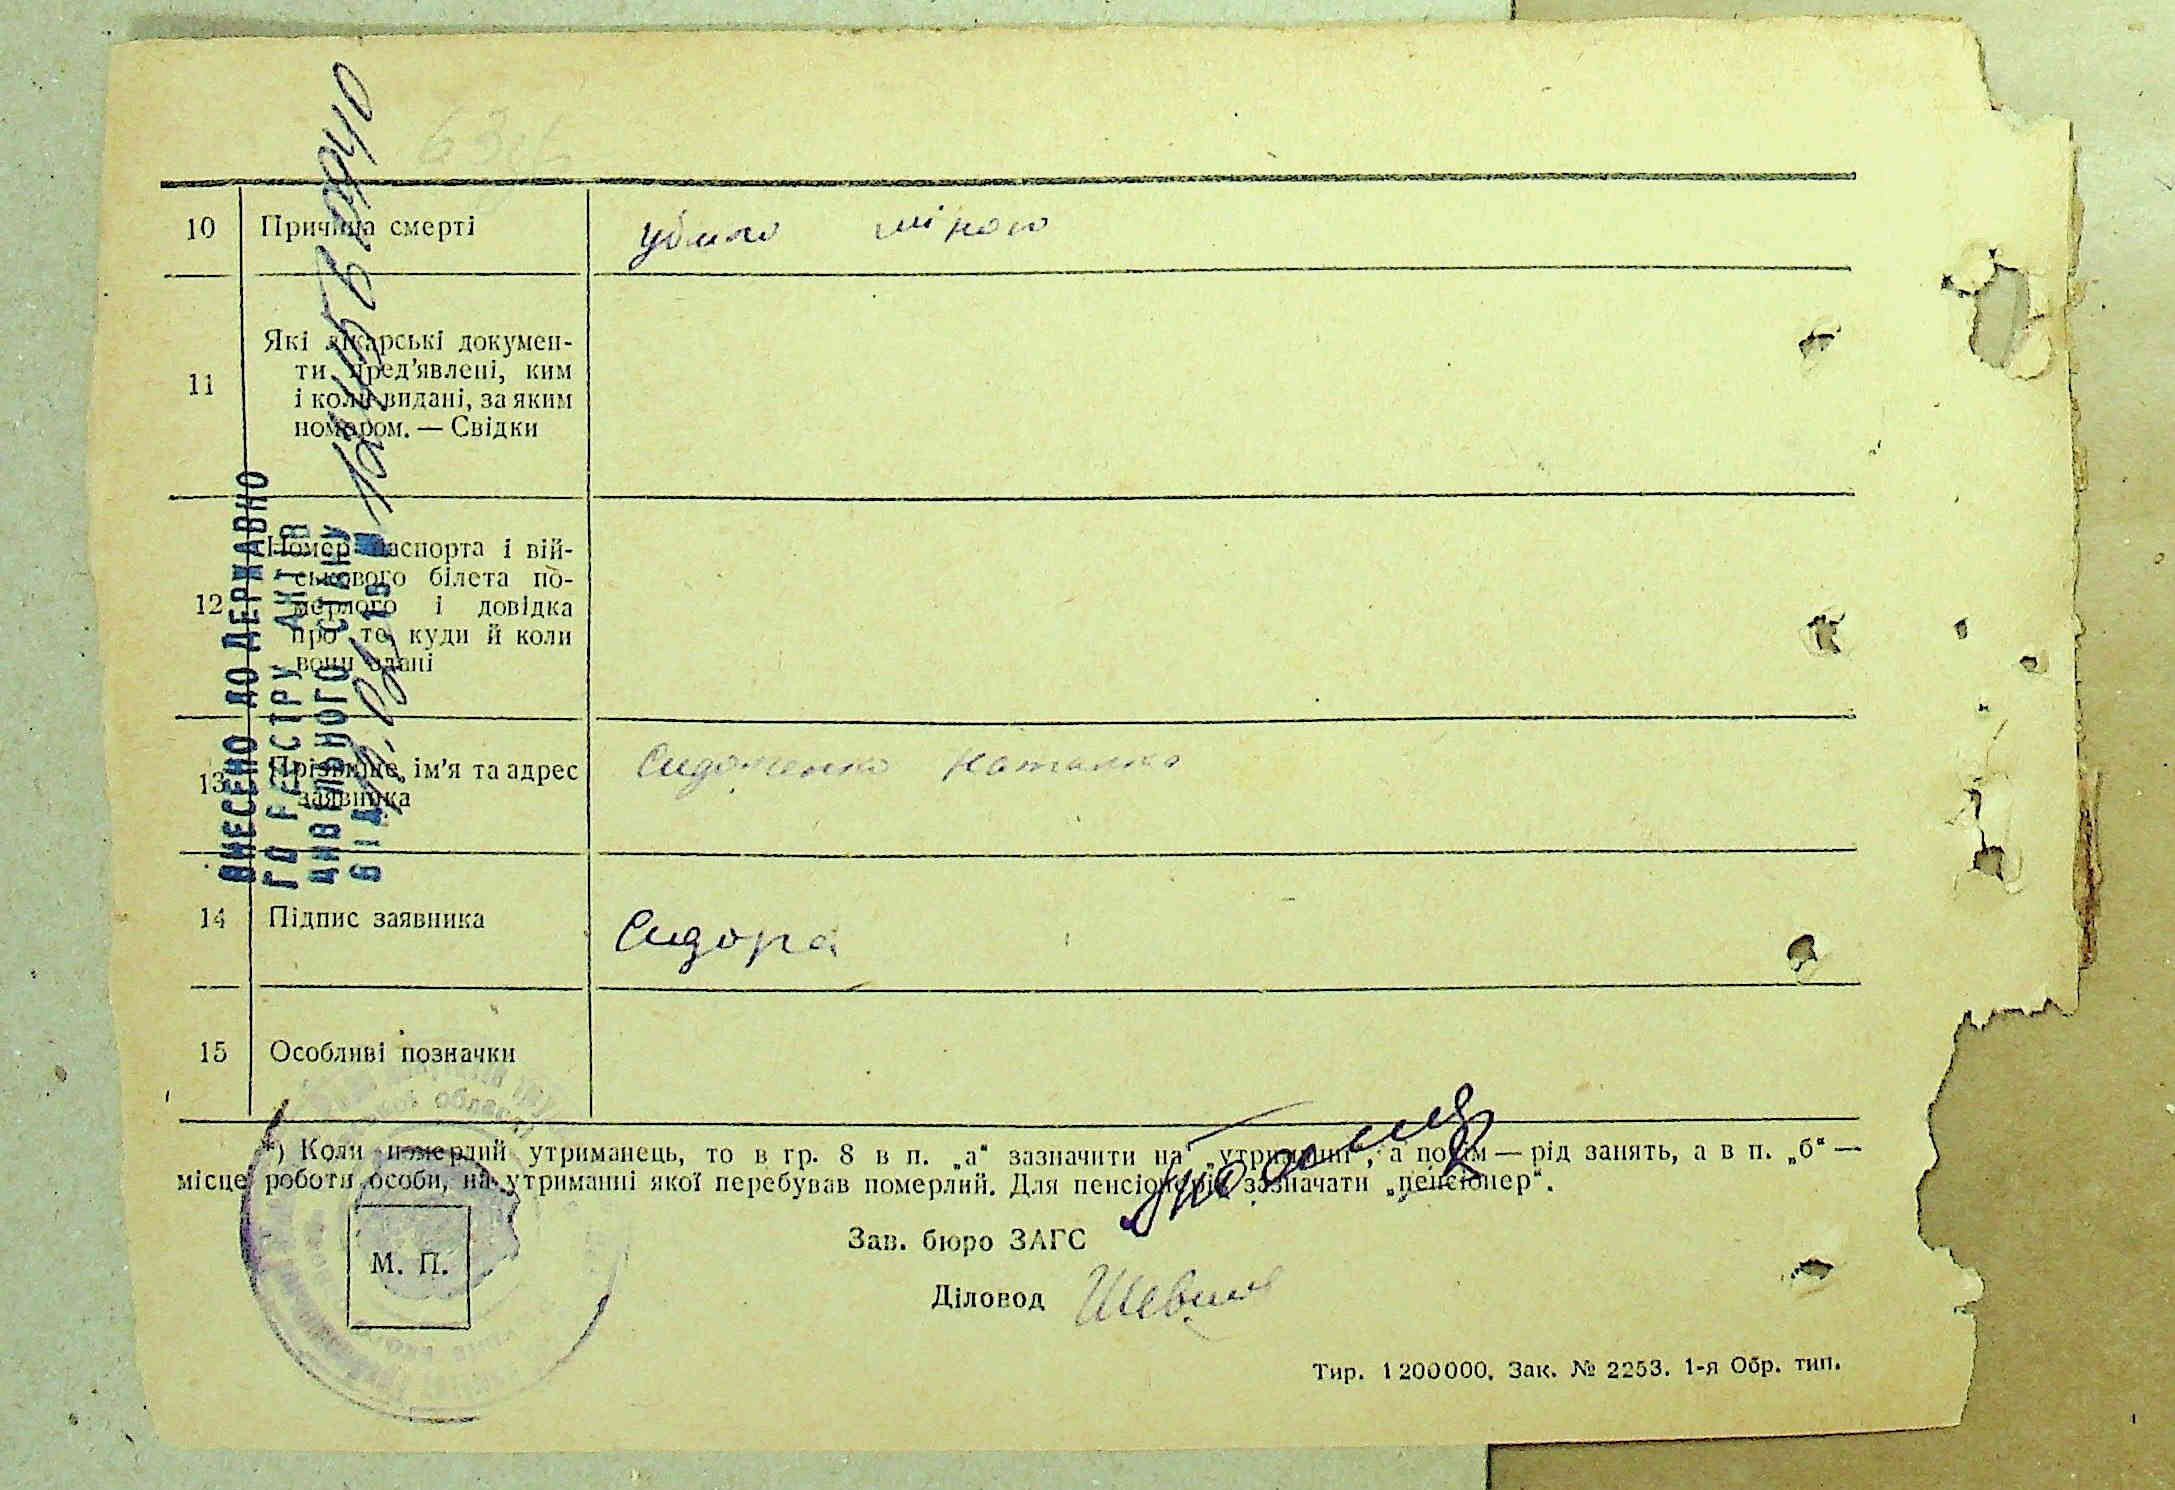 10 Причина смерті убило міною
11 Які лікарські докумен-
ти пред'явлені, ким
і коли видані, за яким
номером. — Свідки
12 Номер паспорта і вій-
ськового білета по-
мерлого і довідка
про те, куди й коли
вони здані
13 Прізвище, ім'я та адрес
заявника
Наталка
14 Підпис заявника Сидора
15 Особливі позначки
*) Коли померлий утриманець, то в гр. 8 в п. „а“ зазначити на „утриманні“, а потім — рід занять, а в п. „б“ —
місце роботи особи, на утриманні якої перебував померлий. Для пенсіонерів зазначати „пенсіонер“.
М. П.
Зав. бюро ЗАГС
Діловод
Тир. 1200000. Зак. № 2253. 1-я Обр. тип.
ВНЕСЕНО ДО ДЕРЖАВНО
ГО РЕЄСТРУ АКТІВ
ЦИВІЛЬНОГО СТАНУ
ВІД
області